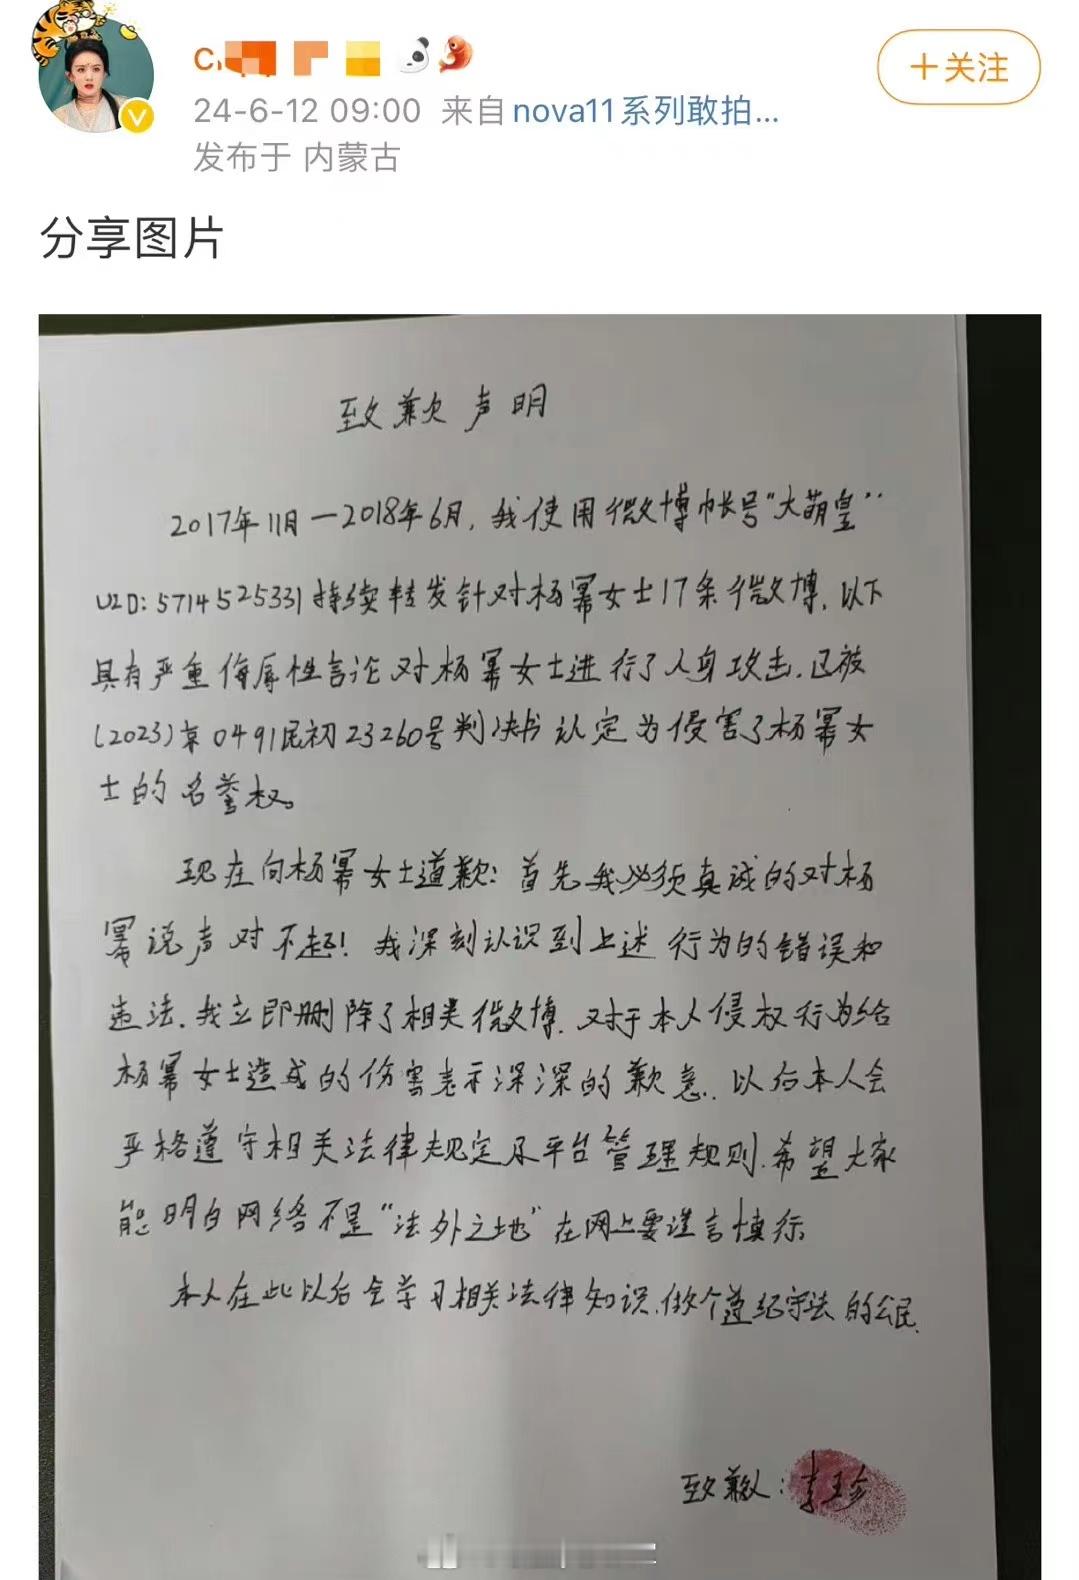 +关注
24-6-12 09:00 来自 nova11系列敢拍...
发布于 内蒙古
分享图片
致歉声明
2017年11月—2018年6月,我使用微博帐号"大萌皇"
UID:5714525331持续转发针对杨幂女士17条微博,以下
具有严重侮辱性言论对杨幂女士进行了人身攻击.已被
(2023)京0491民初23260号判决书认定为侵害了杨幂女
士的名誉权。
现在向杨幂女士道歉:首先我必须真诚的对杨
幂说声对不起!我深刻认识到上述行为的错误和
违法.我立即删除了相关微博.对于本人侵权行为给
杨幂女士造成的伤害表示深深的歉意.以后本人会
严格遵守相关法律规定及平台管理规则.希望大家
能明白网络不是"法外之地"在网上要谨言慎行.
本人在此以后会学习相关法律知识.做个遵纪守法的公民.
致歉人:李玉珍